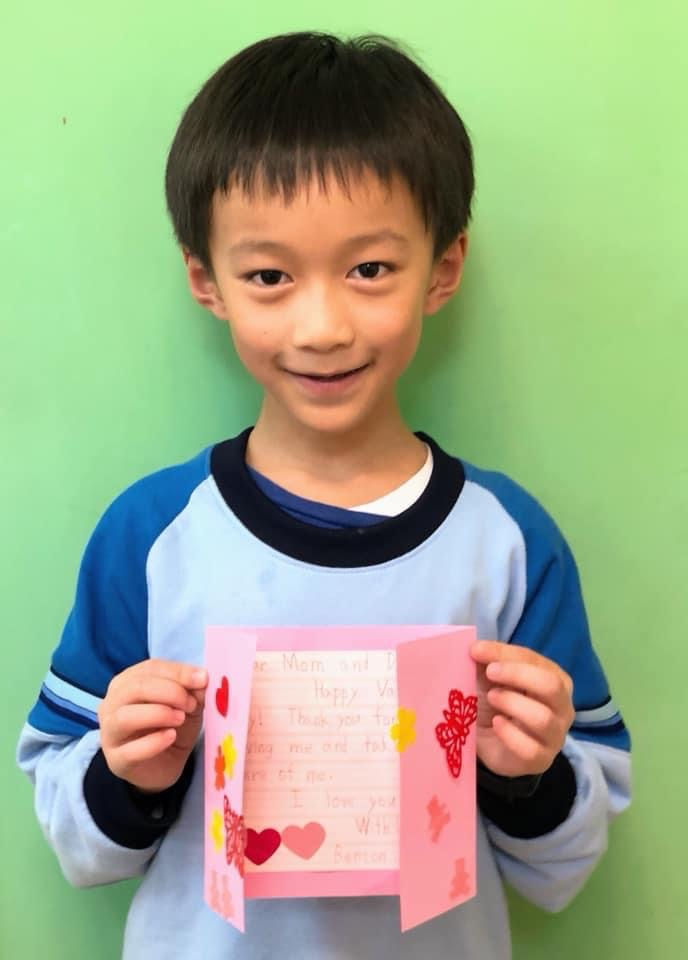 ar Mom and D
Happy Va
y! Thank you for
ving me and tak
are of me.
I love you
With
Benson